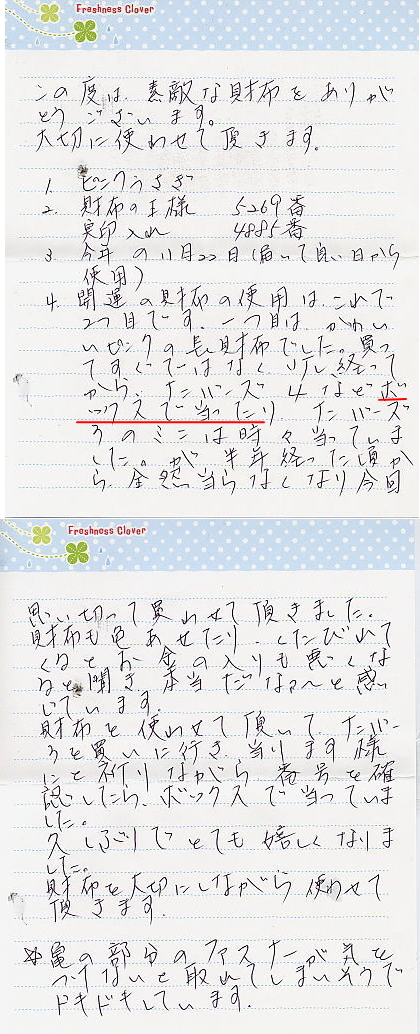 Freshness Clover
この度は、素敵な財布をありが
とうございます。
大切に使わせて頂きます。
1. ピンクうさぎ
2. 財布の王様 5269番
実印入れ 4885番
3. 今年の11月22日(届いて良い日から
使用)
4. 開運の財布の使用は、これで
2つ目です。一つ目は、かわい
いピンクの長財布でした。買っ
てすぐではなく、少し経って
から、ナンバーズ4などボ
ックスで当ったり、ナンバーズ
3のミニは時々当っていま
した。が、半年経った頃か
ら、全然当らなくなり今回
Freshness Clover
思い切って買わせて頂きました。
財布も色あせたり、くたびれて
くるとお金の入りも悪くな
ると聞き、本当だな〜と感
じています。
財布を使わせて頂いて、ナンバー
3を買いに行き、当ります様
にと祈りながら番号を確
認したら、ボックスで当っていま
した。
久しぶりでとても嬉しくなりま
した。
財布を大切にしながら使わせて
頂きます。
※亀の部分のファスナーが気を
つけないと取れてしまいそうで
ドキドキしています。